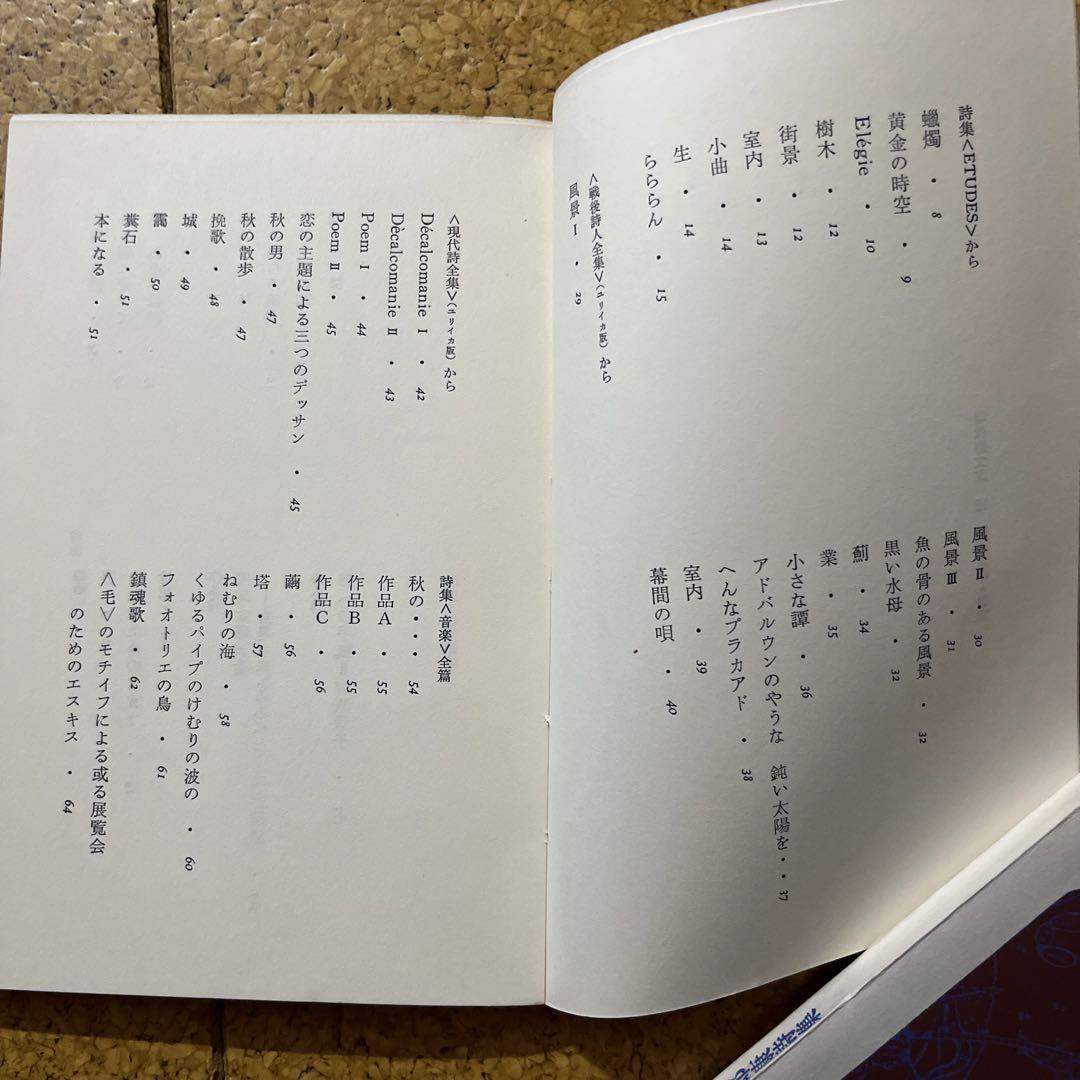 詩集<ETUDES>から
蠟燭・8
黄金の時空・9
Elégie・10
樹木・12
街景・12
室内・13
小曲・14
生・14
らららん・15
<戦後詩人全集>(ユリイカ版)から
風景Ⅰ・29
風景Ⅱ・30
風景Ⅲ・31
魚の骨のある風景・32
黒い水母・32
薊・34
業・35
小さな譚・36
アドバルウンのやうな 鈍い太陽を・・37
へんなプラカアド・38
室内・39
幕間の唄・40
<現代詩全集>(ユリイカ版)から
Décalcomanie Ⅰ・42
Dècalcomanie Ⅱ・43
Poem Ⅰ・44
Poem Ⅱ・45
恋の主題による三つのデッサン・45
秋の男・47
秋の散歩・47
挽歌・48
城・49
靄・50
糞石・51
本になる・51
詩集<音楽>全篇
秋の・・・54
作品A・55
作品B・55
作品C・56
繭・56
塔・57
ねむりの海・58
くゆるパイプのけむりの波の・60
フォオトリエの鳥・61
鎮魂歌・62
<毛>のモチイフによる或る展覧会
のためのエスキス・64